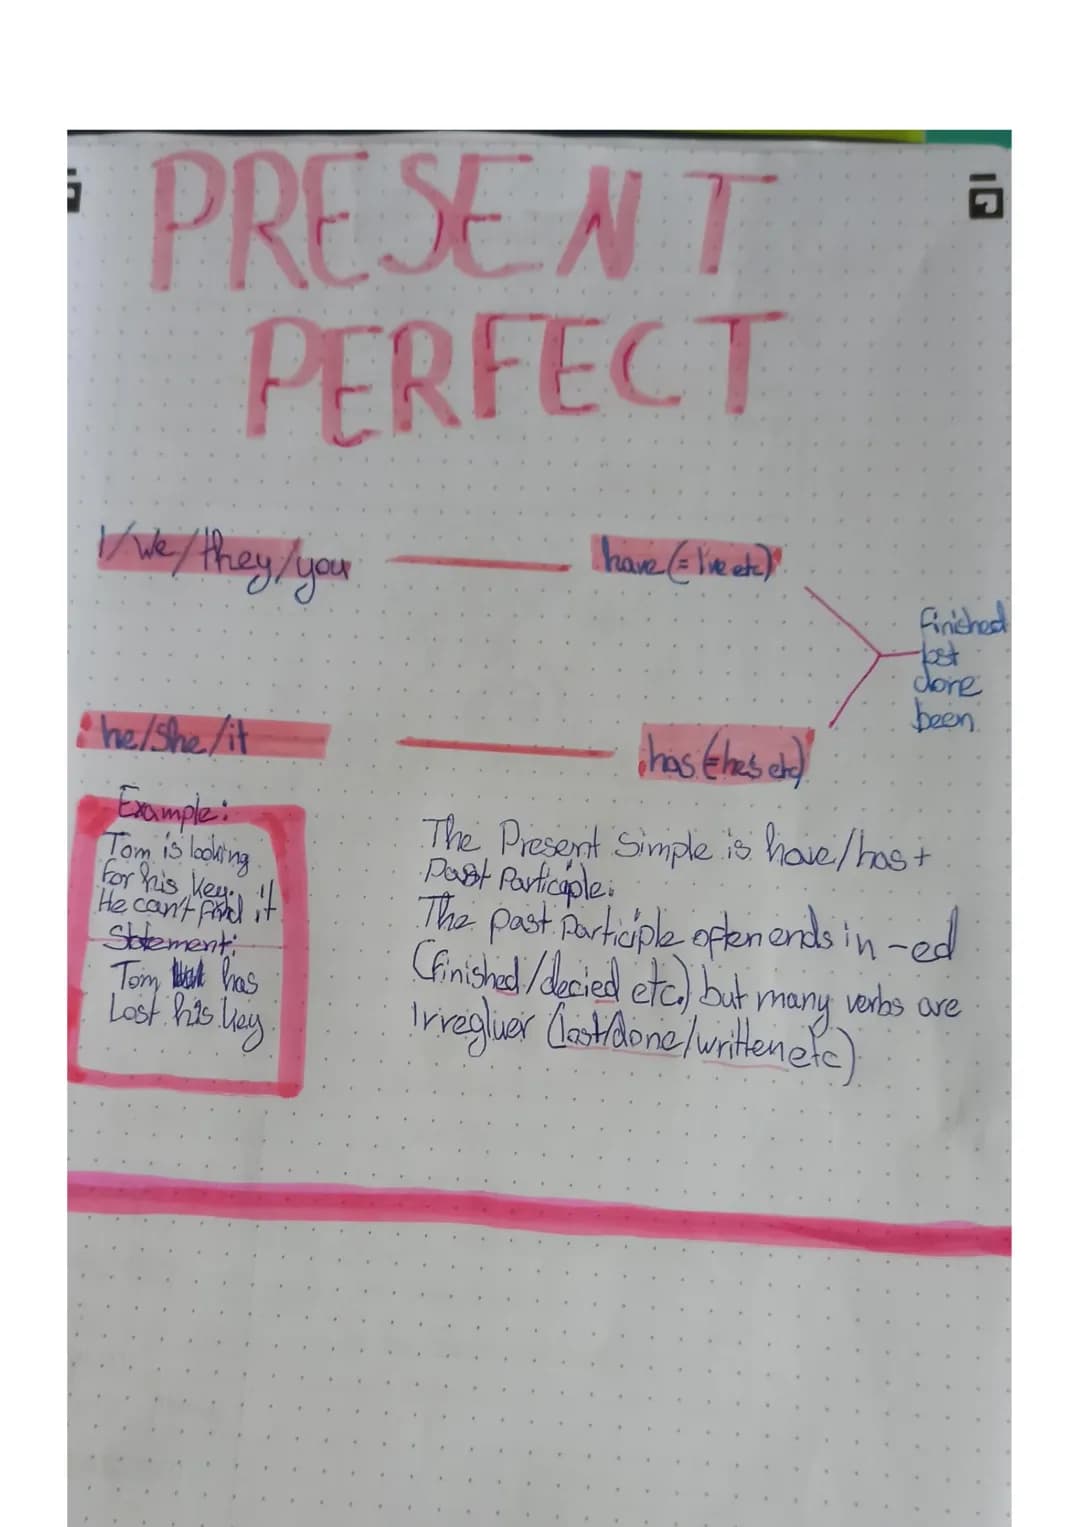 PRESENT
PERFECT
I/we/they/you
have (= I've etc)
finished
lost
done
been
he/she/it
has (= he's etc)
Example:
Tom is looking
for his key.
He can't find it
Statement:
Tom has
Lost his key
The Present Simple is have/has +
Past Participle.
The past Participle often ends in -ed
(finished/decied etc.) but many verbs are
Irregluer (lost/done/written etc)